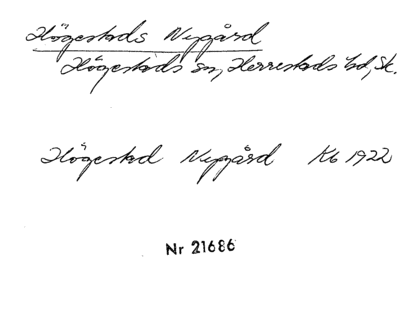 Högestads Nygård
Högestads sn, Herrestads hd, Sk.
Högestad Nygård Kb 1922
Nr 21686